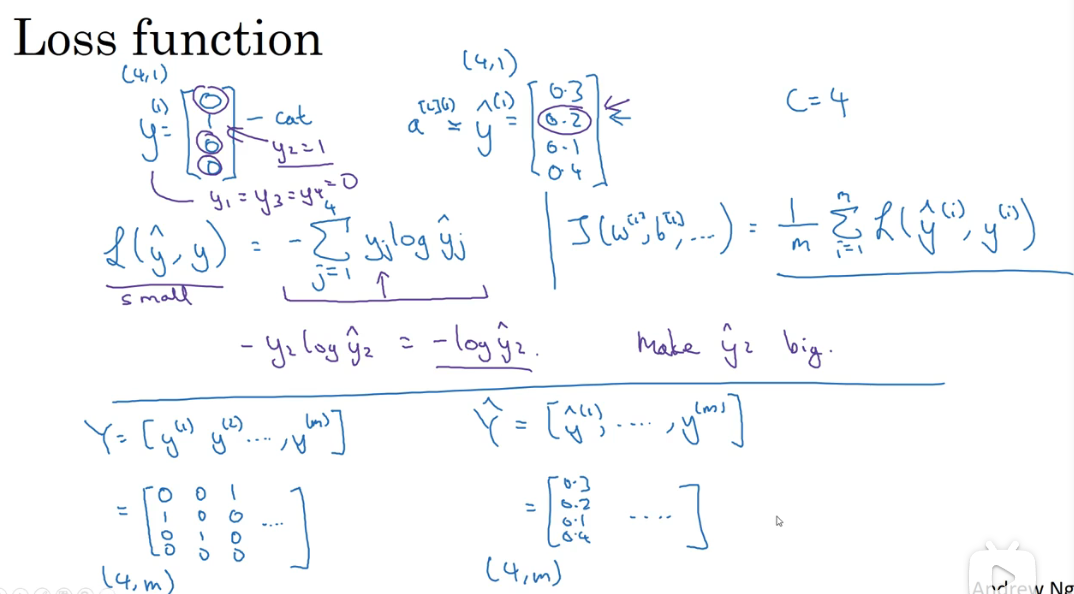 Loss function
(4,1)
y^{(1)} = [0 1 0 0] - cat
y₂=1
y₁ = y₃ = y₄ = 0
(4,1)
a^{[L](1)} = ŷ^{(1)} = [0.3 0.2 0.1 0.4]
C=4
L(ŷ, y) = - Σ_{j=1}^{4} y_j log ŷ_j
small
J(w^{[1]}, b^{[1]}, ...) = 1/m Σ_{i=1}^{m} L(ŷ^{(i)}, y^{(i)})
- y₂ log ŷ₂ = - log ŷ₂. Make ŷ₂ big.
Y = [y^{(1)} y^{(2)} ...., y^{(m)}]
= [0 0 1
1 0 0 ....
0 1 0
0 0 0]
(4,m)
Ŷ = [ŷ^{(1)}, ...., y^{(m)}]
= [0.3
0.2
0.1 ....
0.4]
(4,m)
Andrew Ng